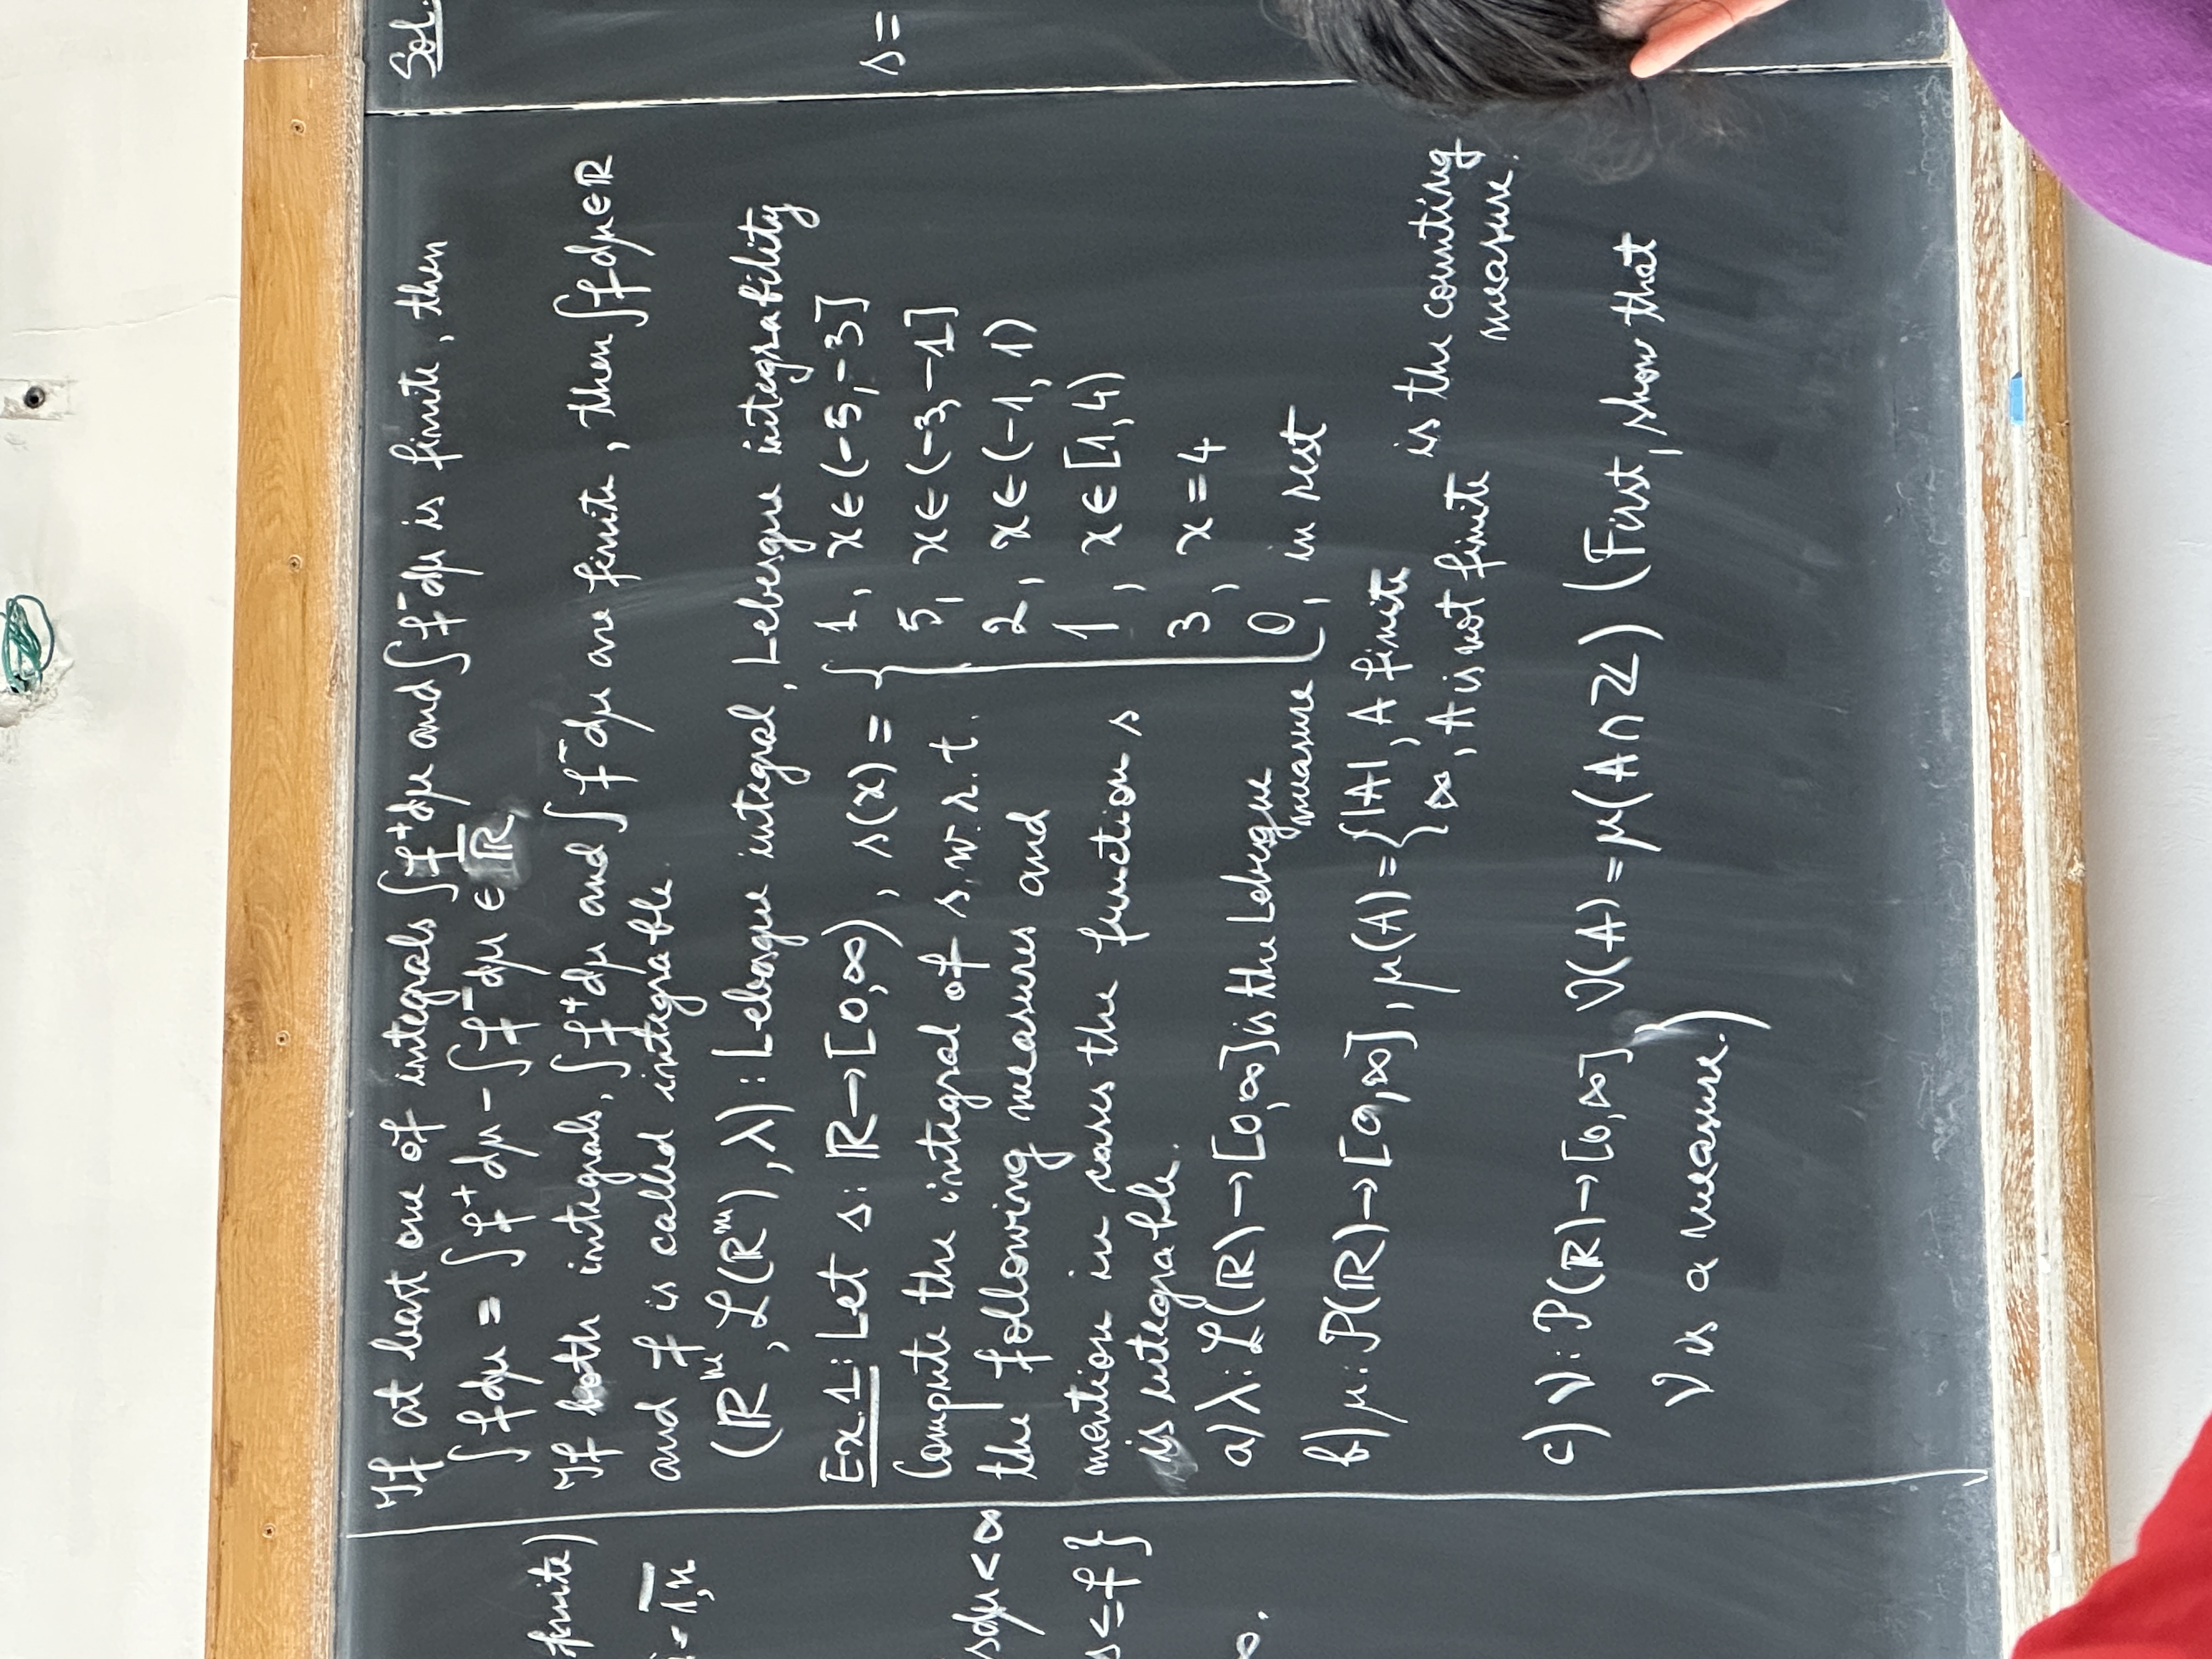 If at least one of integrals ∫f⁺dμ and ∫f⁻dμ is finite, then
∫fdμ = ∫f⁺dμ - ∫f⁻dμ ∈ R̅
If both integrals, ∫f⁺dμ and ∫f⁻dμ are finite, then ∫fdμ∈ℝ
and f is called integrable.
(ℝᵐ, ℒ(ℝᵐ), λ): Lebesgue integral, Lebesgue integrability
Ex.1: Let s: ℝ→[0,∞), s(x) = { 1, x∈(-5,-3]
Compute the integral of s w.r.t. 5, x∈(-3,-1]
the following measures and 2, x∈(-1, 1)
mention in cases the function s 1, x∈[1,4)
is integrable. 3, x=4
a) λ: ℒ(ℝ)→[0,∞] is the Lebesgue
measure 0, in rest
b) μ: P(ℝ)→[0,∞], μ(A) = { |A|, A finite
∞, A is not finite is the counting
measure.
c) ν: P(ℝ)→[0,∞], ν(A) = μ(A∩ℤ) (First, show that
ν is a measure.)
finite)
i=1,n
sdμ<∞
s≤f}
∞.
Sol.
s=